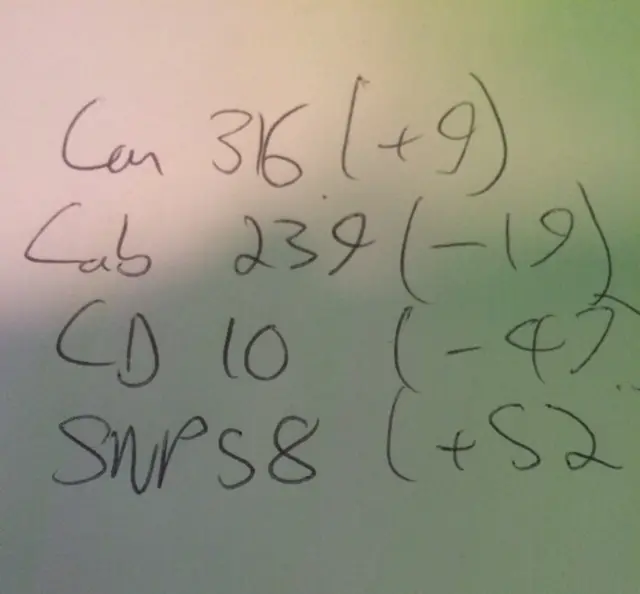 Con 316 (+9)
Lab 239 (-19)
LD 10 (-47
SNP 58 (+52